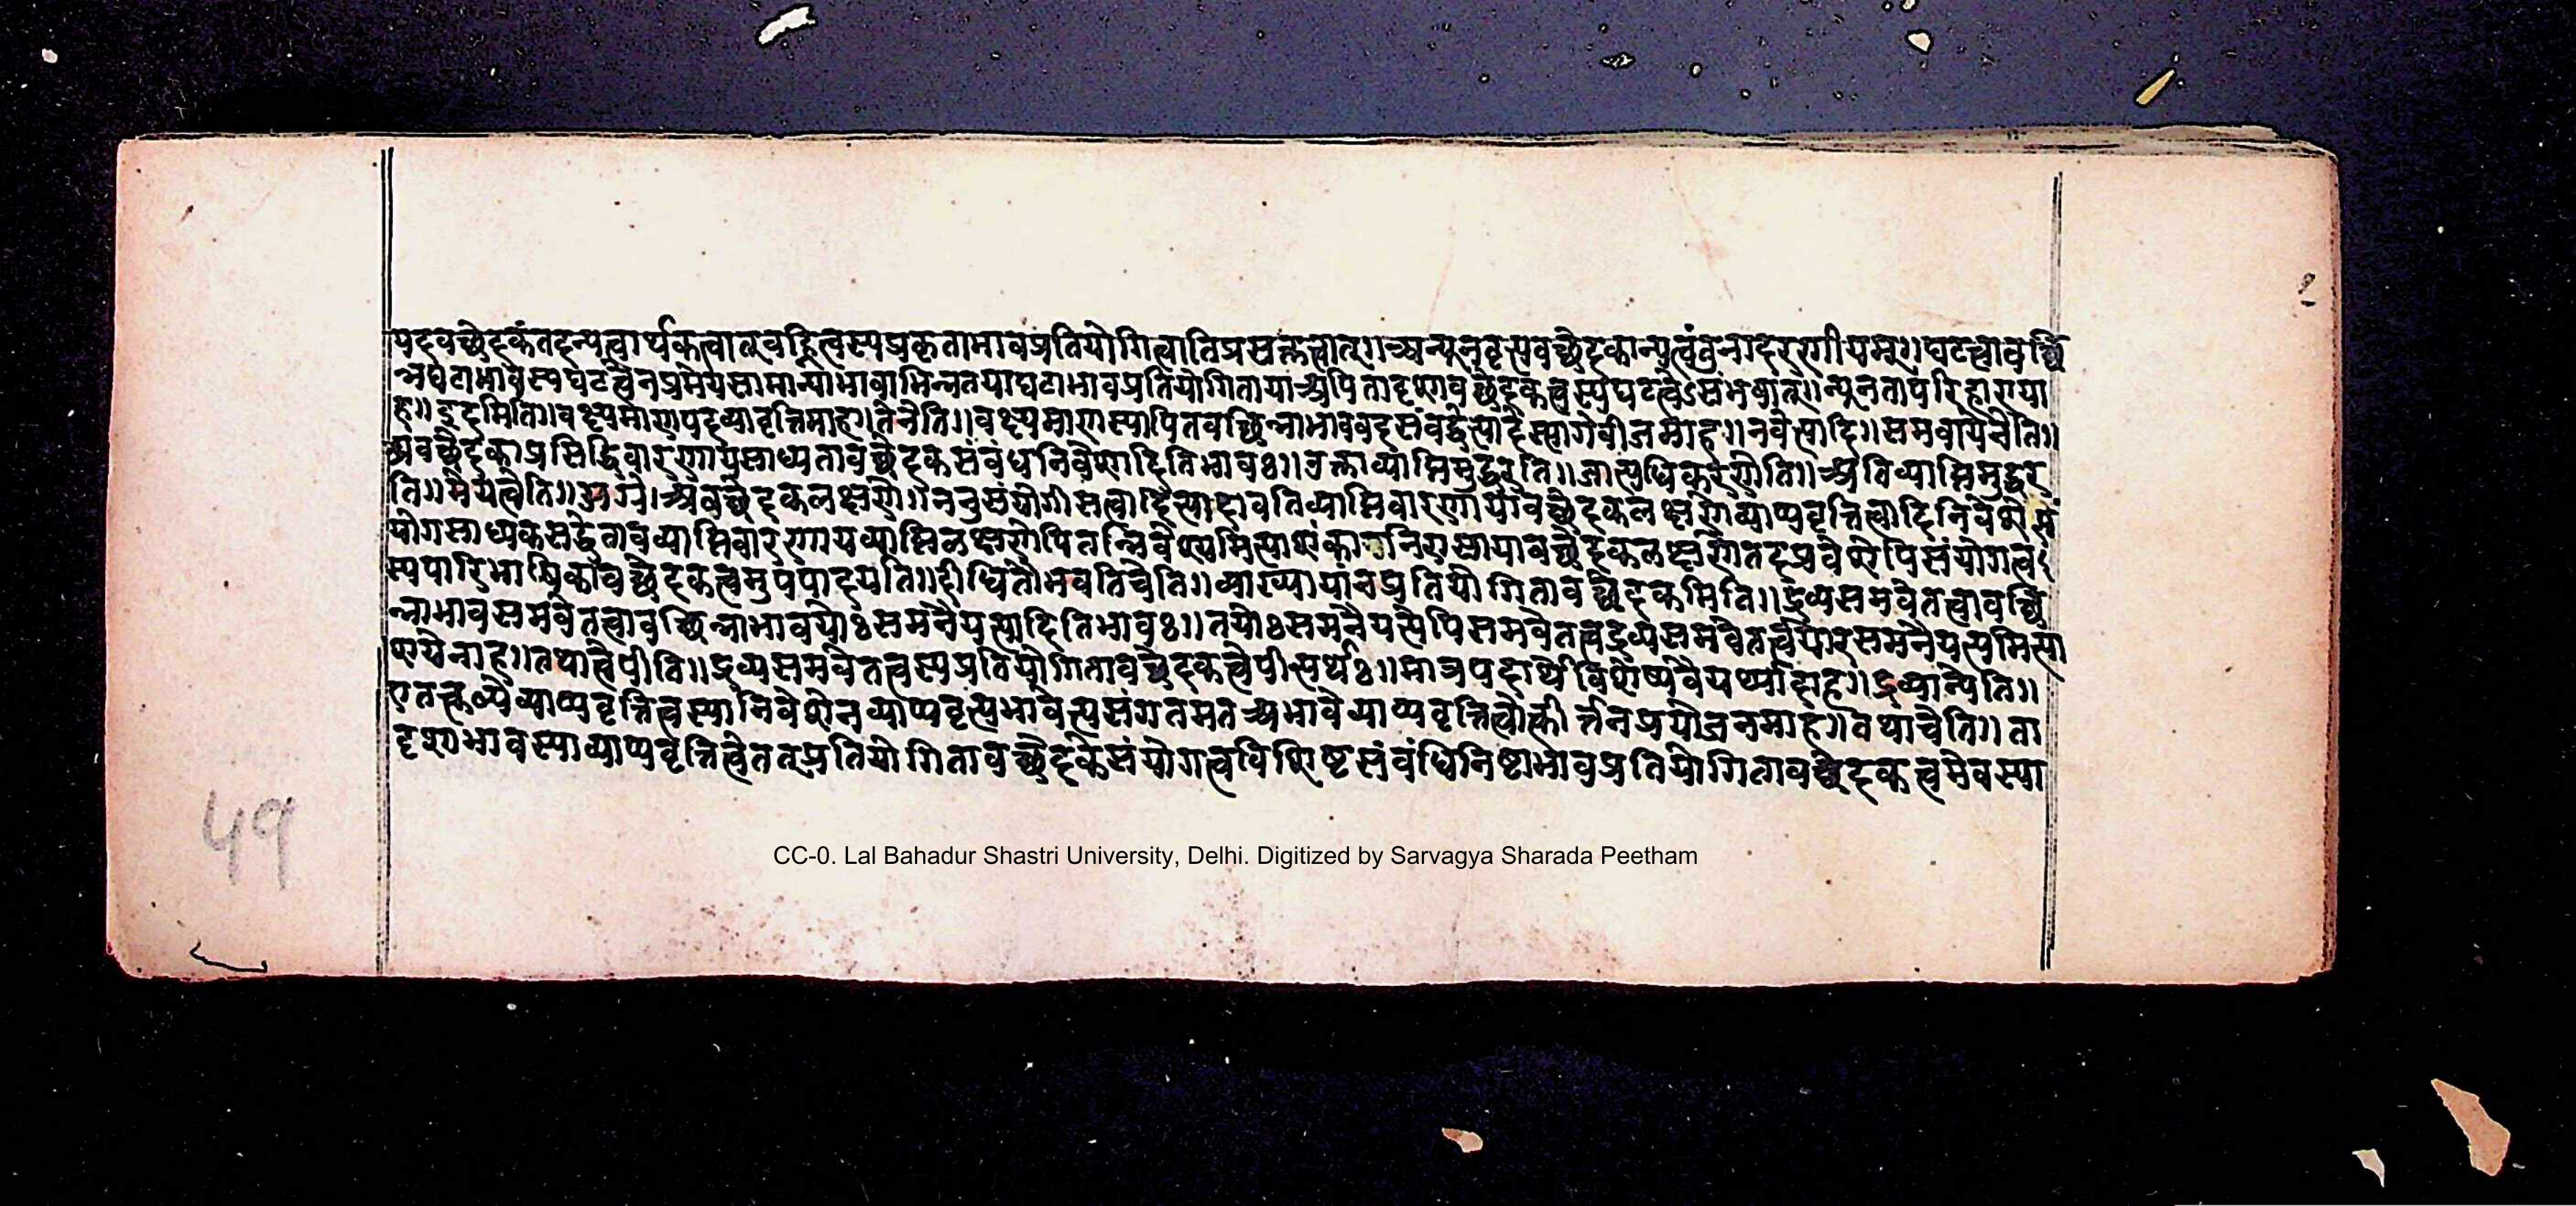 यदवच्छेदकंतदन्यत्वार्थकत्वात्वह्नित्वस्यप्रकृताभावप्रतियोगित्वातिप्रसक्तत्वात्॥अन्यूनवृत्त्यवच्छेदकान्यत्वंतुनादररगीयम्॥घटत्वावच्छि
न्नघटाभावेस्वघटत्वेनप्रमेयसामान्याभावाभिन्नतयाघटाभावप्रतियोगितायाअपितादृशावच्छेदकत्वस्यघटत्वेऽसंभवात्॥न्यूनतापरिहाराया
ह॥इदमिति॥वक्ष्यमाणपदव्यावृत्तिमाह॥तेनेति॥वक्ष्यमाणस्यापितवच्छिन्नाभाववदसंबद्धेत्यादेस्त्यागेबीजमाह॥नवेत्यादि॥समवायेनेति॥
अवच्छेदकाप्रसिद्धिवारणायसाध्यतावच्छेदकसंबंधनिवेशादितिभावः॥उक्ताव्याप्तिमुद्धरति॥जात्यधिकरणेति॥अतिव्याप्तिमुद्धर
ति॥मेयत्वेति॥अग्रे।अवच्छेदकलक्षणे॥ननुसंयोगीसत्वादित्यादावतिव्याप्तिवारणायावच्छेदकलक्षणेव्याप्यवृत्तित्वादिनिवेशेसं
योगसाध्यकसद्धेतावव्याप्तिवारणायव्याप्तिलक्षणेपितन्निवेश्यमित्याशंकानिरासायावच्छेदकलक्षणेतदप्रवेशेपिसंयोगत्व
स्यपारिभाषिकावच्छेदकत्वमुपपादयति॥दीधितौभवतिचेति॥व्याख्यायांनप्रतियोगितावच्छेदकमिति॥द्रव्यसमवेतत्वावच्छि
न्नाभावसमवेतत्वावच्छिन्नाभावयोःसमनैयत्यादितिभावः॥तयोःसमनैयत्येपिसमवेतत्वद्रव्यसमवेतत्वयोरसमनैयत्यमित्या
शयेनाह॥तथात्वेपीति॥द्रव्यसमवेतत्वस्यप्रतियोगितावच्छेदकत्वेपीत्यर्थः॥मात्रपदार्थविशेष्यवैयर्थ्यादाह॥द्रव्यान्येति॥
एतत्कल्पेव्याप्यवृत्तित्वस्यानिवेशेनव्याप्यवृत्त्यभावेत्यसंगतमतअभावेव्याप्यवृत्तित्वोत्कीर्त्तनप्रयोजनमाह॥तथाचेति॥ता
दृशाभावस्याव्याप्यवृत्तित्वेतत्प्रतियोगितावच्छेदकेसंयोगत्वविशिष्टसंबंधिनिष्टाभावप्रतियोगितावच्छेदकत्वमेवस्या
49
CC-0. Lal Bahadur Shastri University, Delhi. Digitized by Sarvagya Sharada Peetham